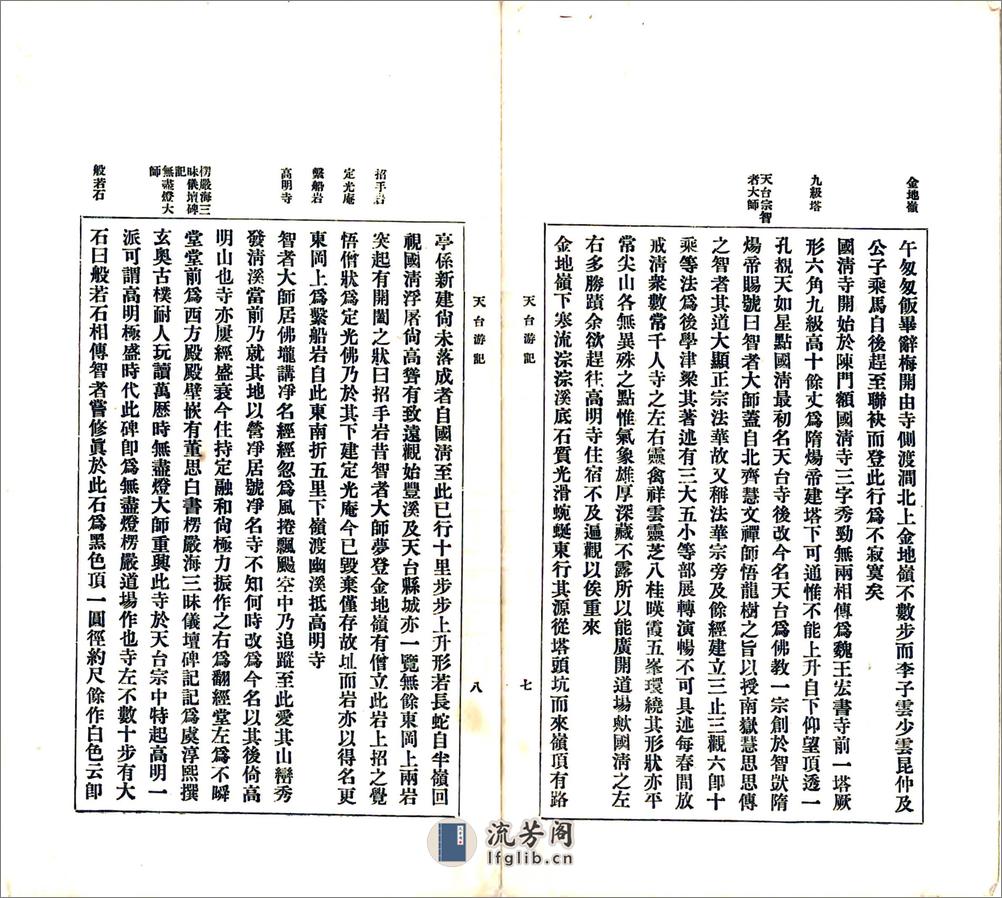 金地嶺
九級塔
天台宗智
者大師
午匆匆飯畢辭梅開由寺側渡澗北上金地嶺不數步而李子雲少雲昆仲及
公子乘馬自後趕至聯袂而登此行爲不寂寞矣
國淸寺開始於陳門額國淸寺三字秀勁無兩相傳爲魏王宏書寺前一塔厥
形六角九級高十餘丈爲隋煬帝建塔下可通惟不能上升自下仰望頂透一
孔覩天如星點國淸最初名天台寺後改今名天台爲佛教一宗創於智敳隋
煬帝賜號曰智者大師蓋自北齊慧文禪師悟龍樹之旨以授南嶽慧思思傳
之智者其道大顯正宗法華故又稱法華宗旁及餘經建立三止三觀六卽十
乘等法爲後學津梁其著述有三大五小等部展轉演暢不可具述每春間放
戒淸衆數常千人寺之左右靈禽祥雲靈芝八桂暎霞五峯環繞其形狀亦平
常尖山各無異殊之點惟氣象雄厚深藏不露所以能廣開道場歟國淸之左
右多勝蹟余欲趕往高明寺住宿不及遍觀以俟重來
金地嶺下寒流淙淙溪底石質光滑蜿蜒東行其源從塔頭坑而來嶺頂有路
天台游記
七
天台游記
八
招手岩
定光庵
繫船岩
高明寺
楞嚴海三
昧儀壇碑
記
無盡燈大
師
般若石
亭係新建尙未落成者自國淸至此已行十里步步上升形若長蛇自半嶺回
視國淸浮屠尙高聳有致遠觀始豐溪及天台縣城亦一覽無餘東岡上兩岩
突起有開闔之狀曰招手岩昔智者大師夢登金地嶺有僧立此岩上招之覺
悟僧狀爲定光佛乃於其下建定光庵今已毀棄僅存故址而岩亦以得名更
東岡上爲繫船岩自此東南折五里下嶺渡幽溪抵高明寺
智者大師居佛壠講凈名經經忽爲風捲飄颺空中乃追蹤至此愛其山巒秀
發淸溪當前乃就其地以營凈居號凈名寺不知何時改爲今名以其後倚高
明山也寺亦屢經盛衰今住持定融和尙極力振作之右爲翻經堂左爲不瞬
堂堂前爲西方殿殿壁嵌有董思白書楞嚴海三昧儀壇碑記記爲虞淳熙撰
玄奧古樸耐人玩讀萬曆時無盡燈大師重興此寺於天台宗中特起高明一
派可謂高明極盛時代此碑卽爲無盡燈楞嚴道場作也寺左不數十步有大
石曰般若石相傳智者嘗修眞於此石爲黑色頂一圓徑約尺餘作白色云卽
流芳阁
lfglib.cn